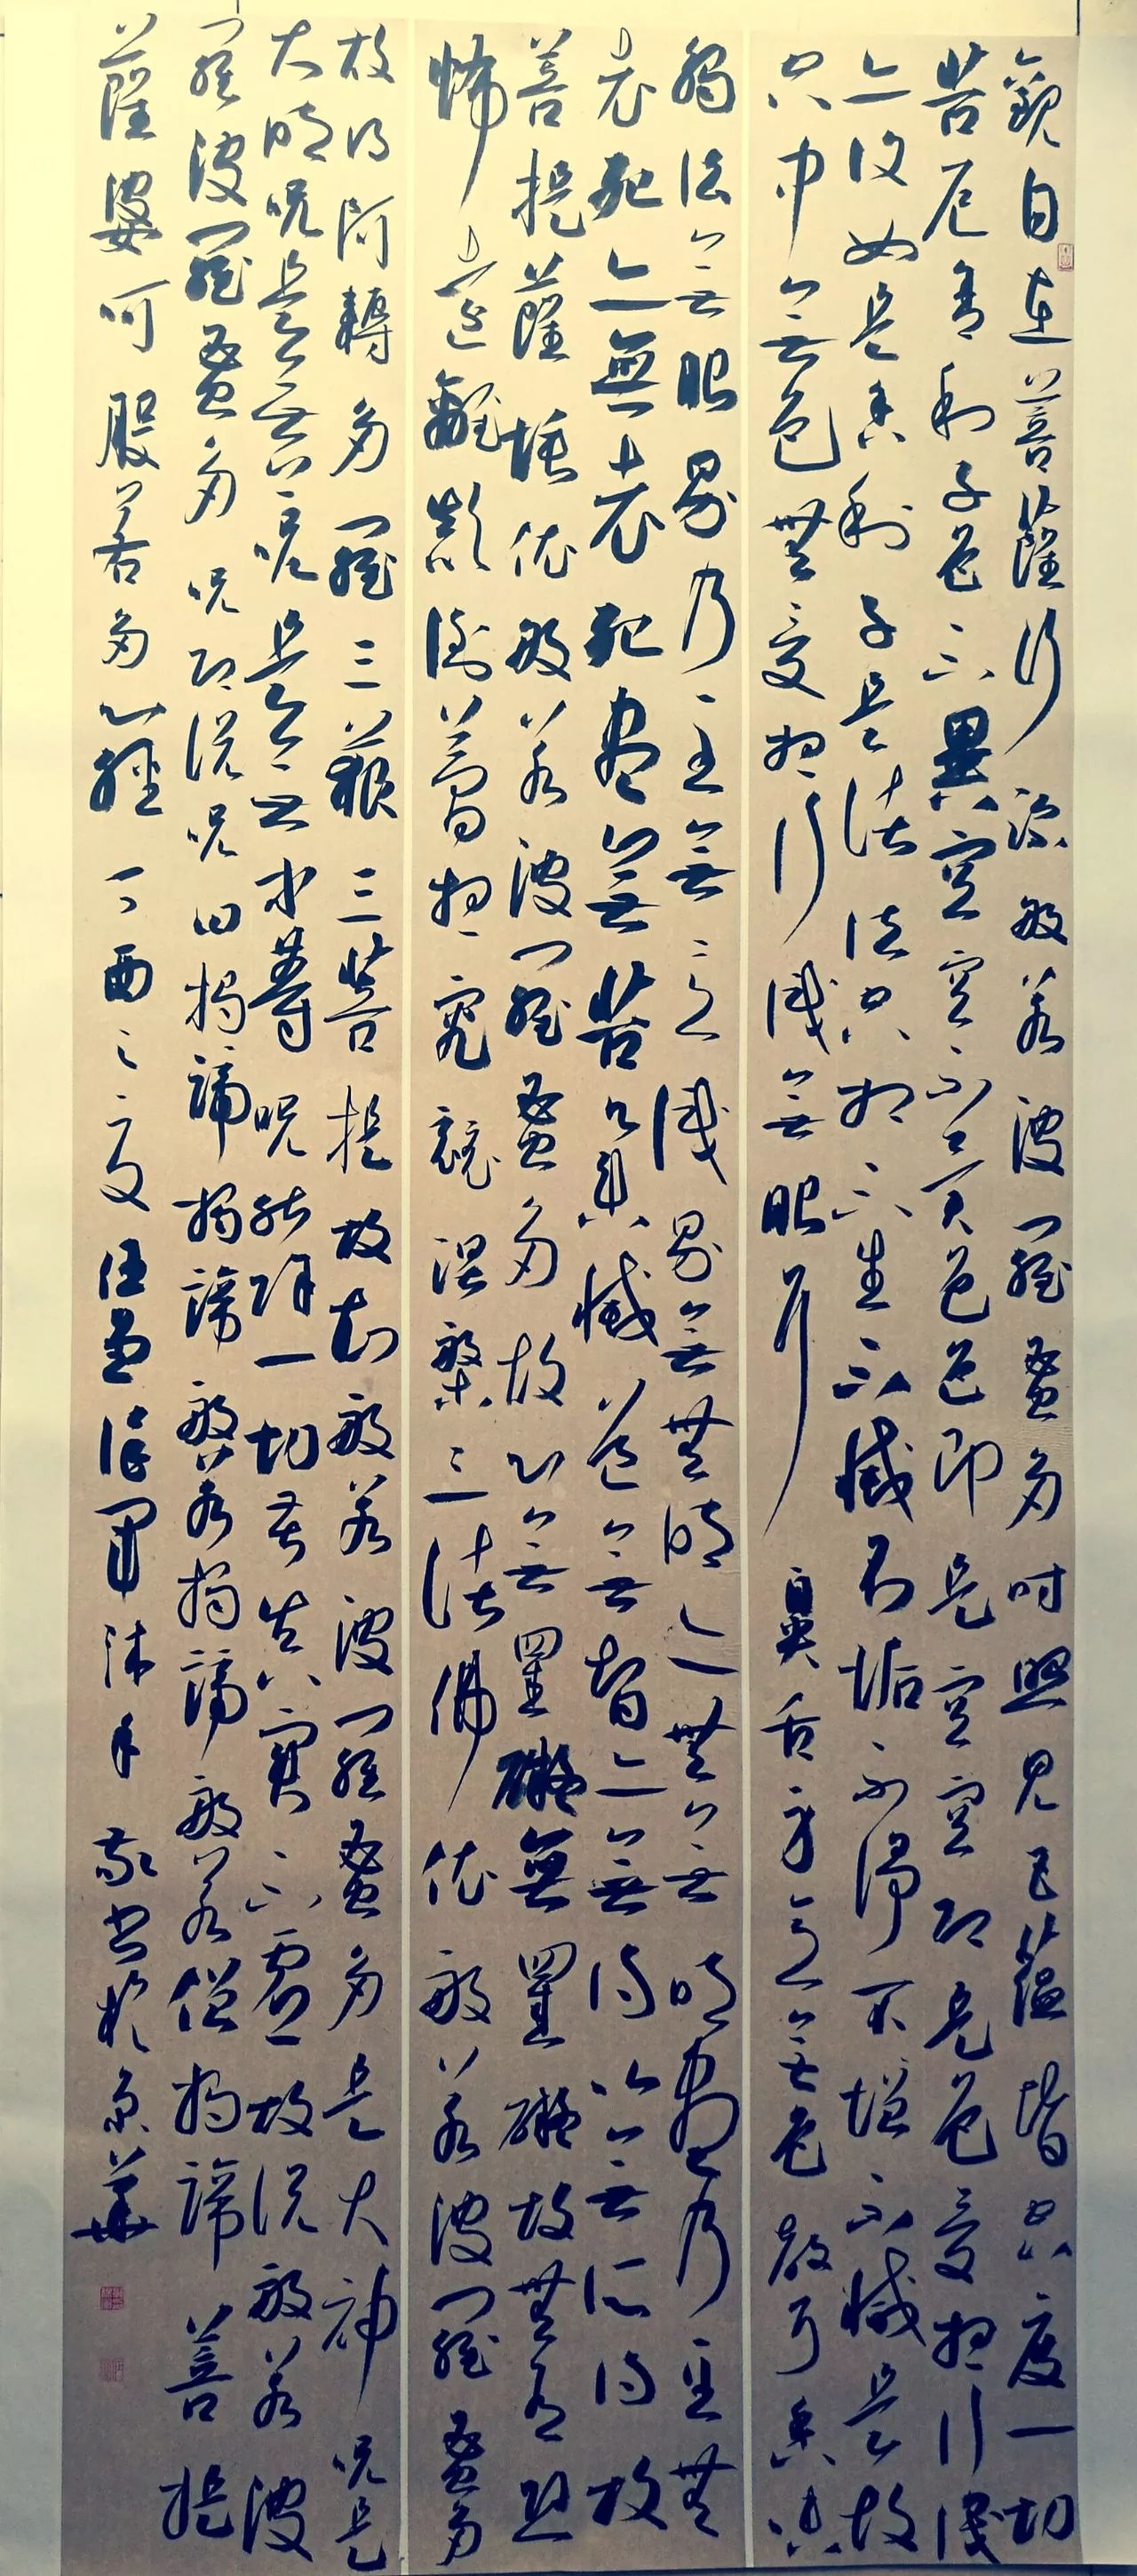 觀自在菩薩行深般若波羅蜜多時照見五蘊皆空度一切
苦厄舍利子色不異空空不異色色即是空空即是色受想行識
亦復如是舍利子是諸法空相不生不滅不垢不淨不增不減是故
空中無色無受想行識無眼耳鼻舌身意無色聲香味
觸法無眼界乃至無意識界無無明亦無無明盡乃至無
老死亦無老死盡無苦集滅道無智亦無得以無所得故
菩提薩埵依般若波羅蜜多故心無罣礙無罣礙故無有恐
怖遠離顛倒夢想究竟涅槃三世諸佛依般若波羅蜜多
故得阿耨多羅三藐三菩提故知般若波羅蜜多是大神呪是
大明呪是無上呪是無等等呪能除一切苦真實不虛故說般若波
羅波羅蜜多呪即說呪曰揭諦揭諦般若揭諦般若僧揭諦菩提
薩婆呵般若多心經丁酉之夏沐手敬書於京華